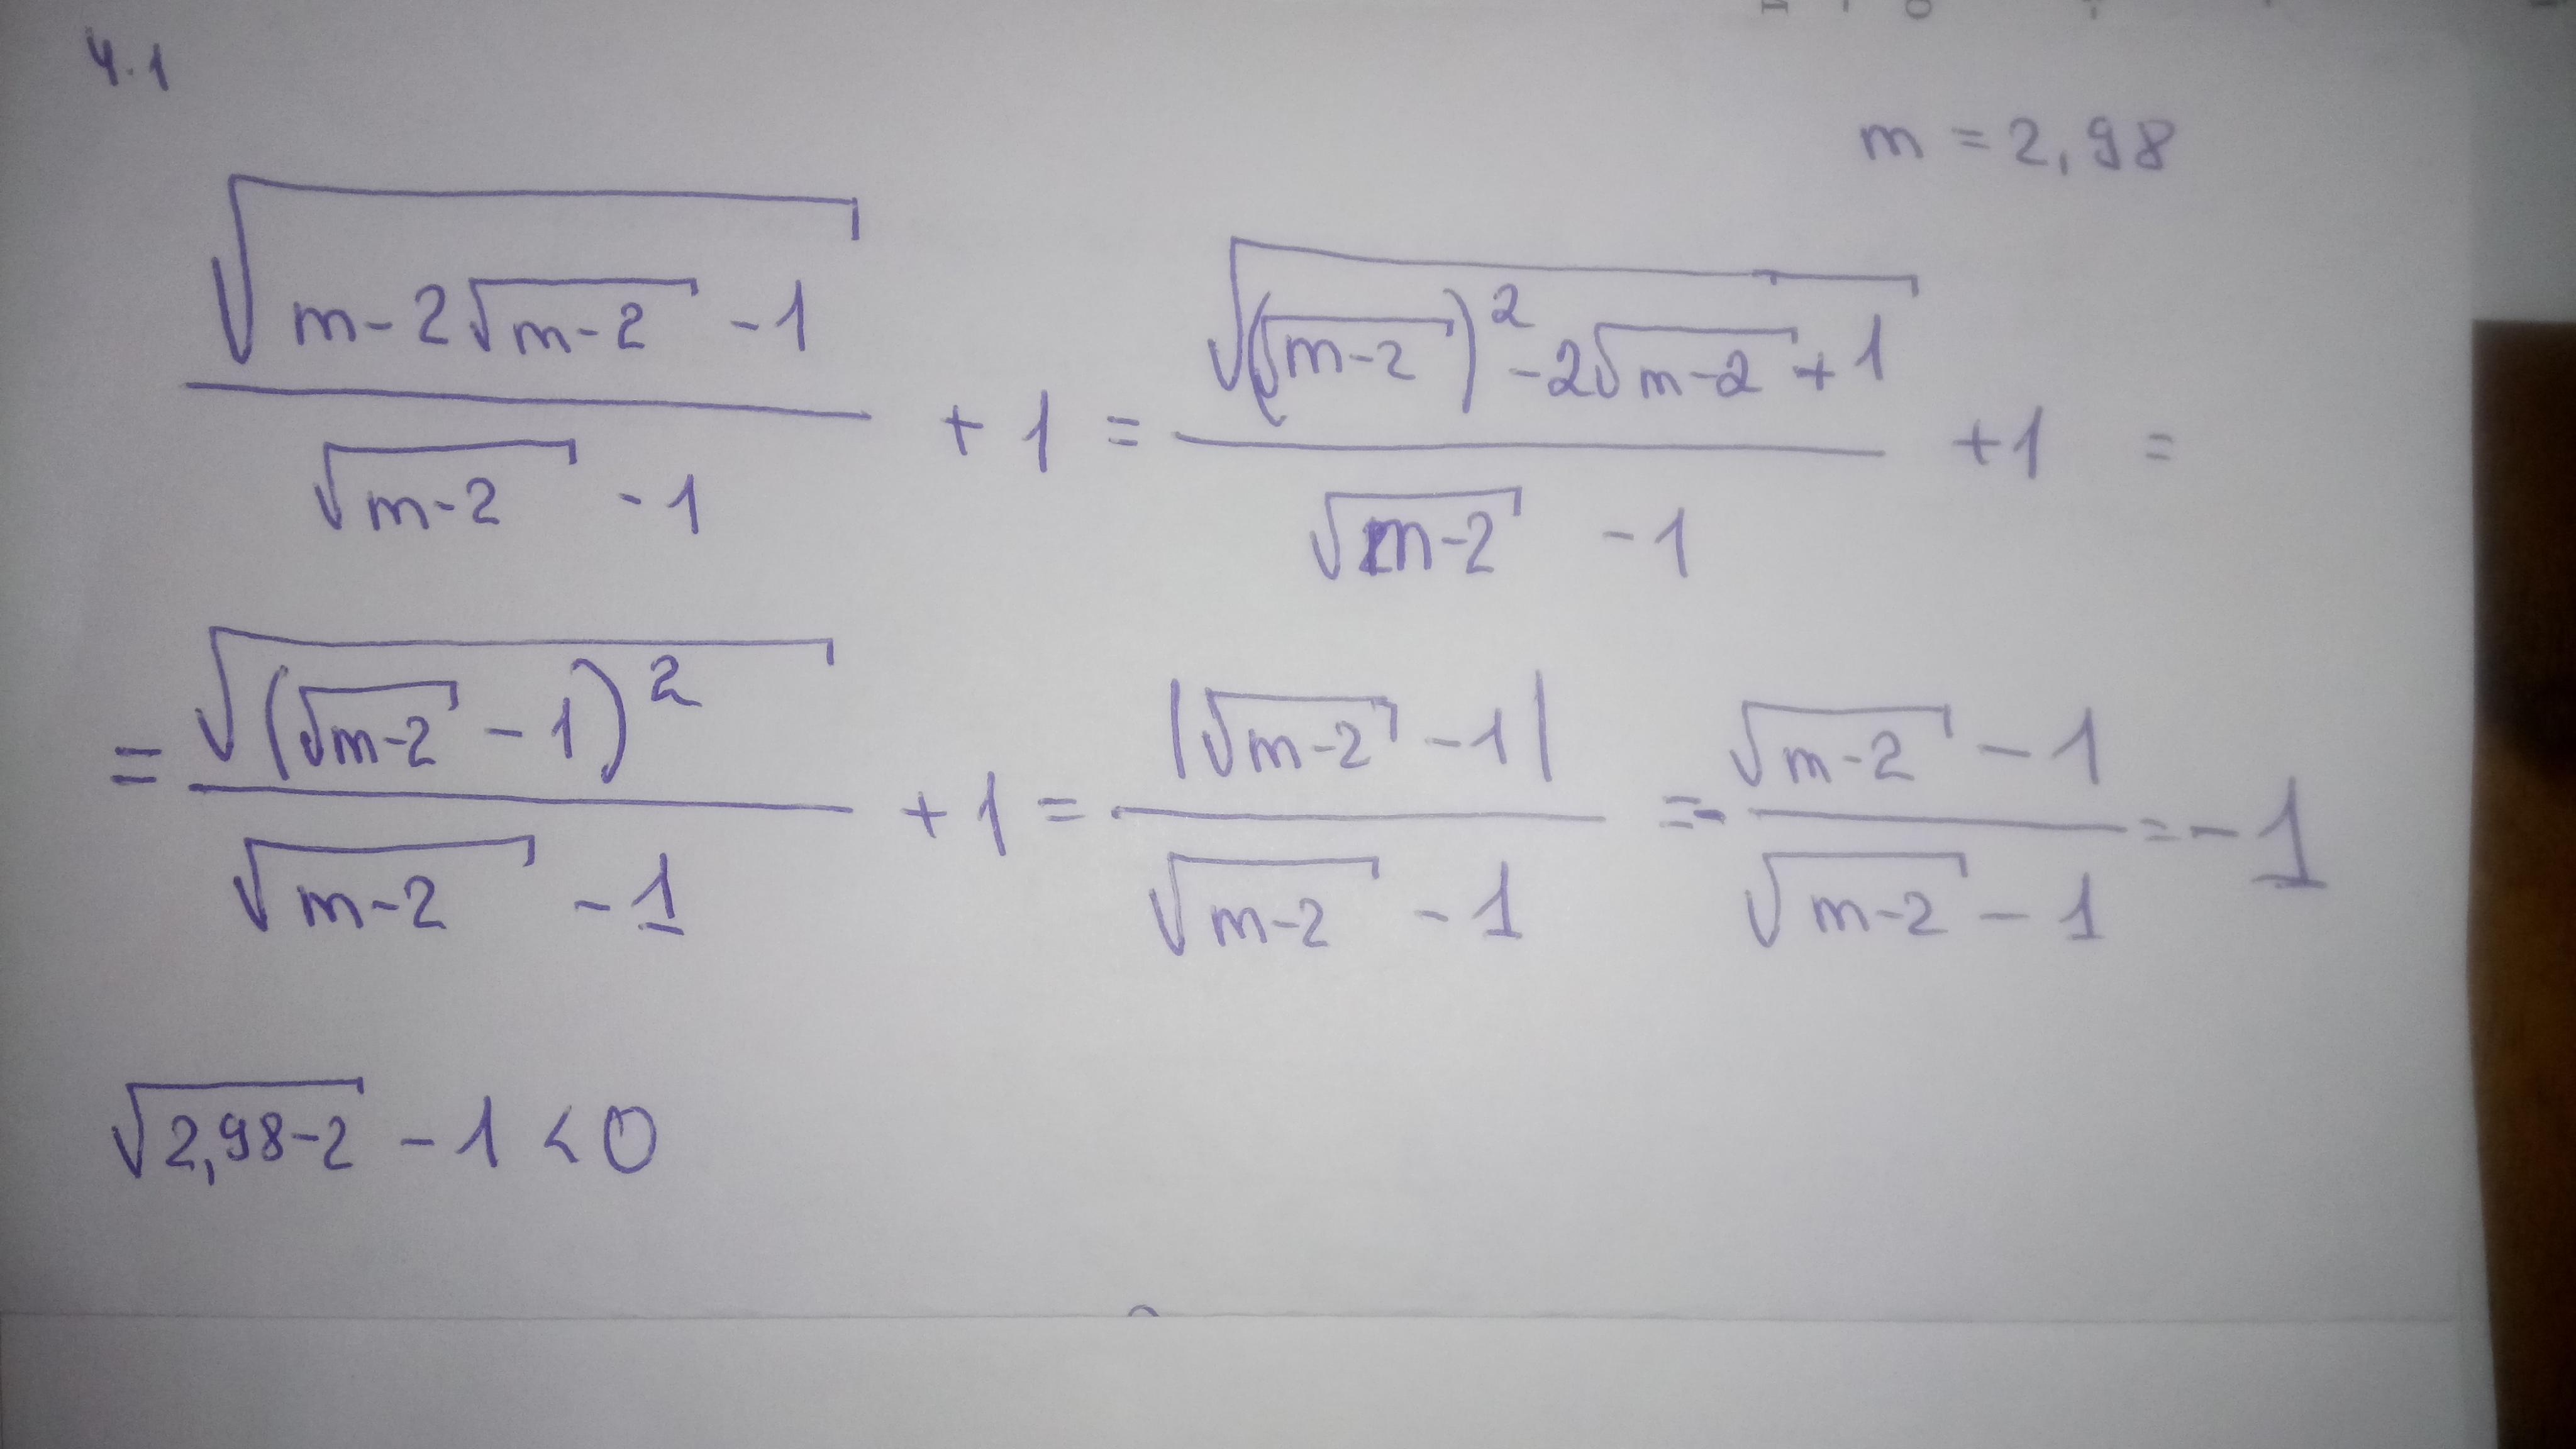 4.1
m = 2,98
√(m-2√(m-2) -1) / (√(m-2) -1) + 1 = √((√(m-2))² -2√(m-2) +1) / (√(m-2) -1) +1 =
= √((√(m-2) -1)²) / (√(m-2) -1) + 1 = |√(m-2) -1| / (√(m-2) -1) = - (√(m-2) -1) / (√(m-2) -1) = -1
√(2,98-2) -1 < 0